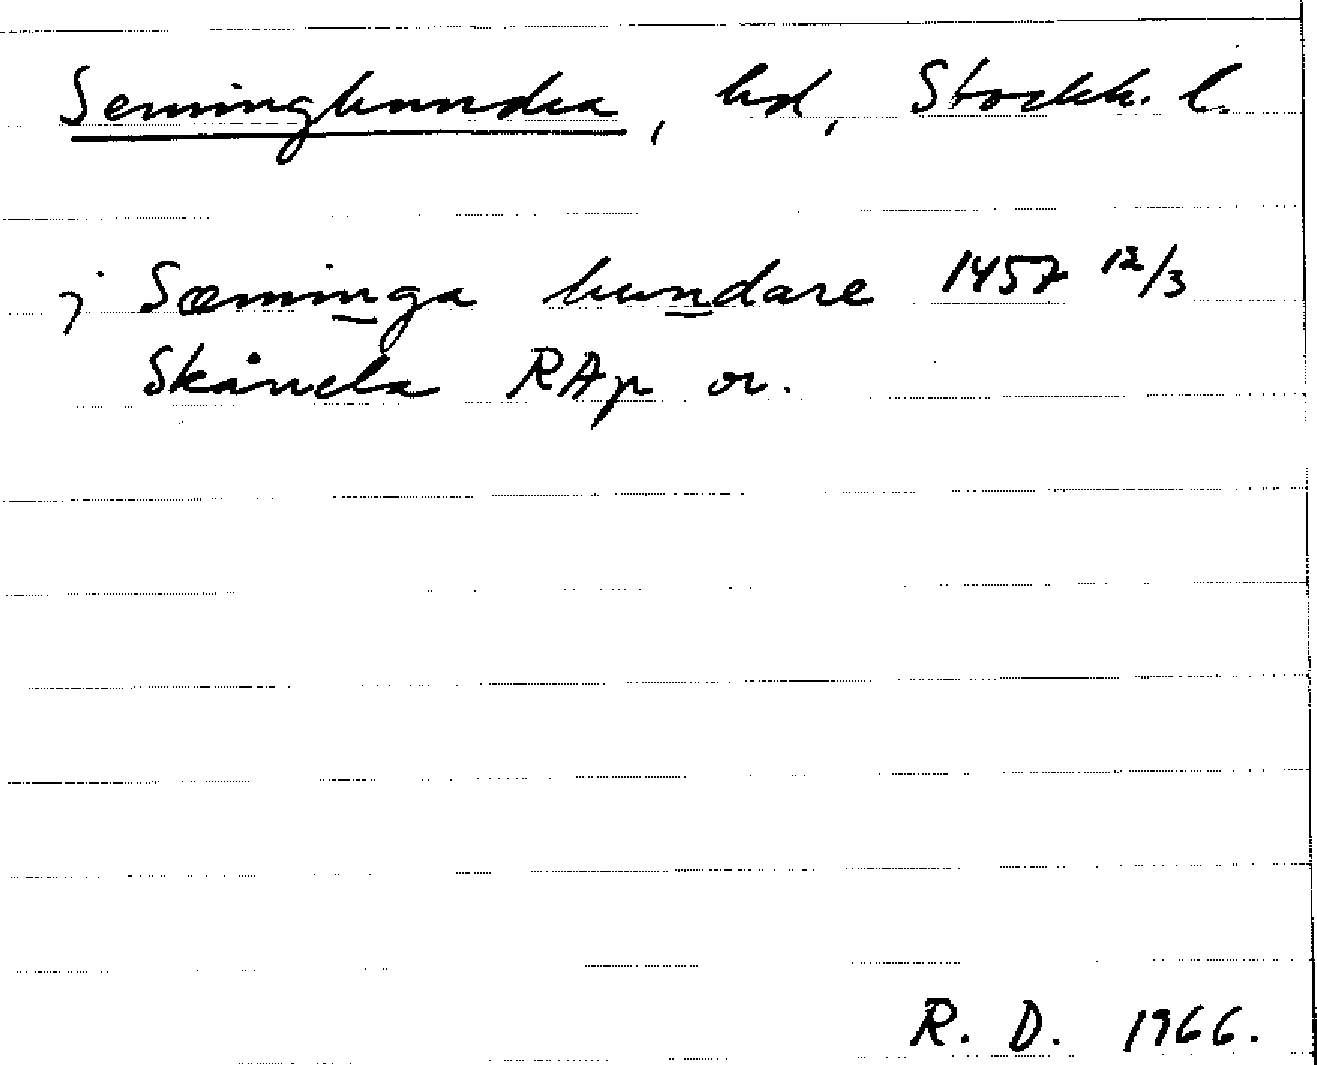 Seminghundra, hd, Stockh. l.
j Sæminga hundare 1457 12/3
Skånela RAp or.
R. D. 1966.